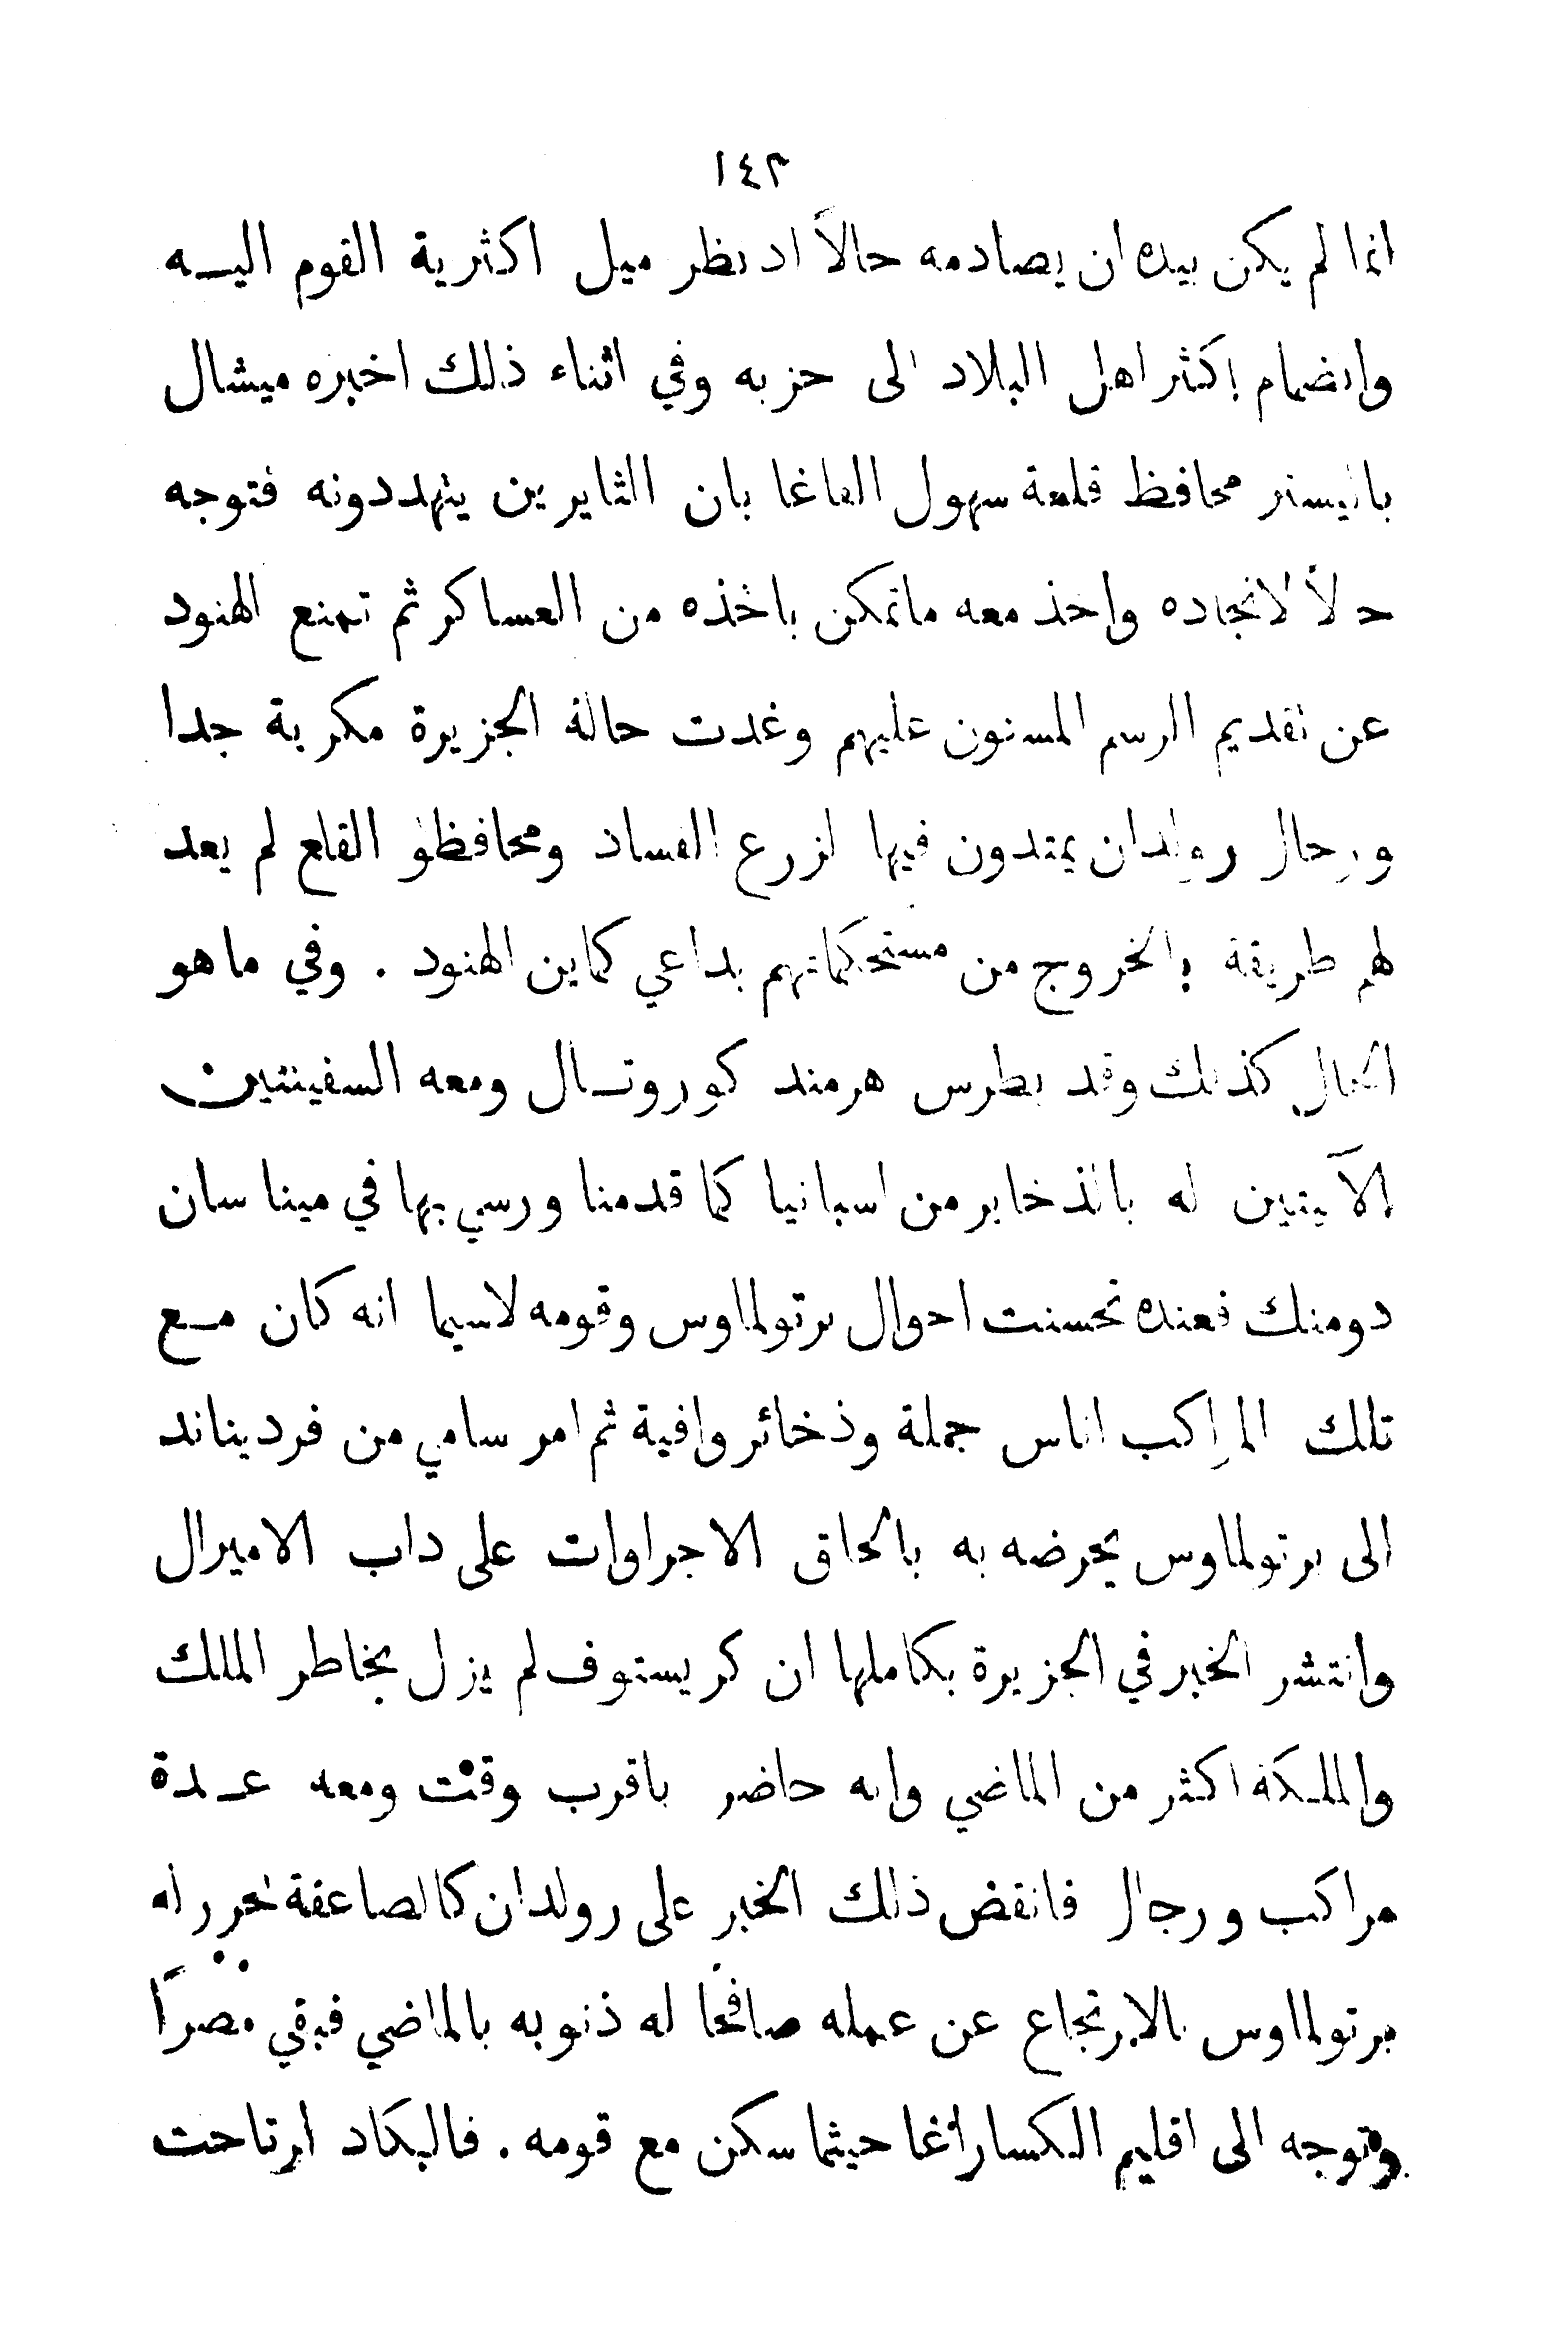 ١٤٢
انما لم يكن بيده ان يصادمه حالاً اد نظر ميل اكثرية القوم اليـــه
وانضمام اكثر اهل البلاد الى حزبه وفي اثناء ذلك اخبره ميشال
باليستر محافظ قلعة سهول الفاغا بان الثايرين يتهددونه فتوجه
حالاً لانجاده واخذ معه ماتمكن باخذه من العساكر ثم تمنع الهنود
عن تقديم الرسم المسنون عليهم وغدت حالة الجزيرة مكربة جدا
ورجال رولدان يمتدون فيها لزرع الفساد ومحافظو القلع لم يعد
لهم طريقة بالخروج من مستحكماتهم بداعي كماين الهنود . وفي ما هو
الحال كذلك وفد بطرس هرمند كورونــال ومعه السفينتين
الآيتين له بالذخاير من اسبانيا كما قدمنا ورسي بها في مينا سان
دومنك فعنده تحسنت احوال برتولماوس وقومه لاسيما انه كان مـــع
تلك المراكب اناس جملة وذخائر وافية ثم امر سامي من فرديناند
الى برتولماوس يحرضه به بالحاق الاجراوات على داب الاميرال
وانتشر الخبر في الجزيرة بكاملها ان كريستوف لم يزل بخاطر الملك
والملـكة اكثر من الماضي وانه حاضر باقرب وقت ومعه عـــدة
مراكب ورجال فانقض ذلك الخبر على رولدان كالصاعقة فحرر له
برتولماوس بالابرتجاع عن عمله صافحًا له ذنوبه بالماضي فبقي مصرًا
وتوجه الى اقليم الـكساراغا حيثما سكن مع قومه . فالبكاد ارتاحت